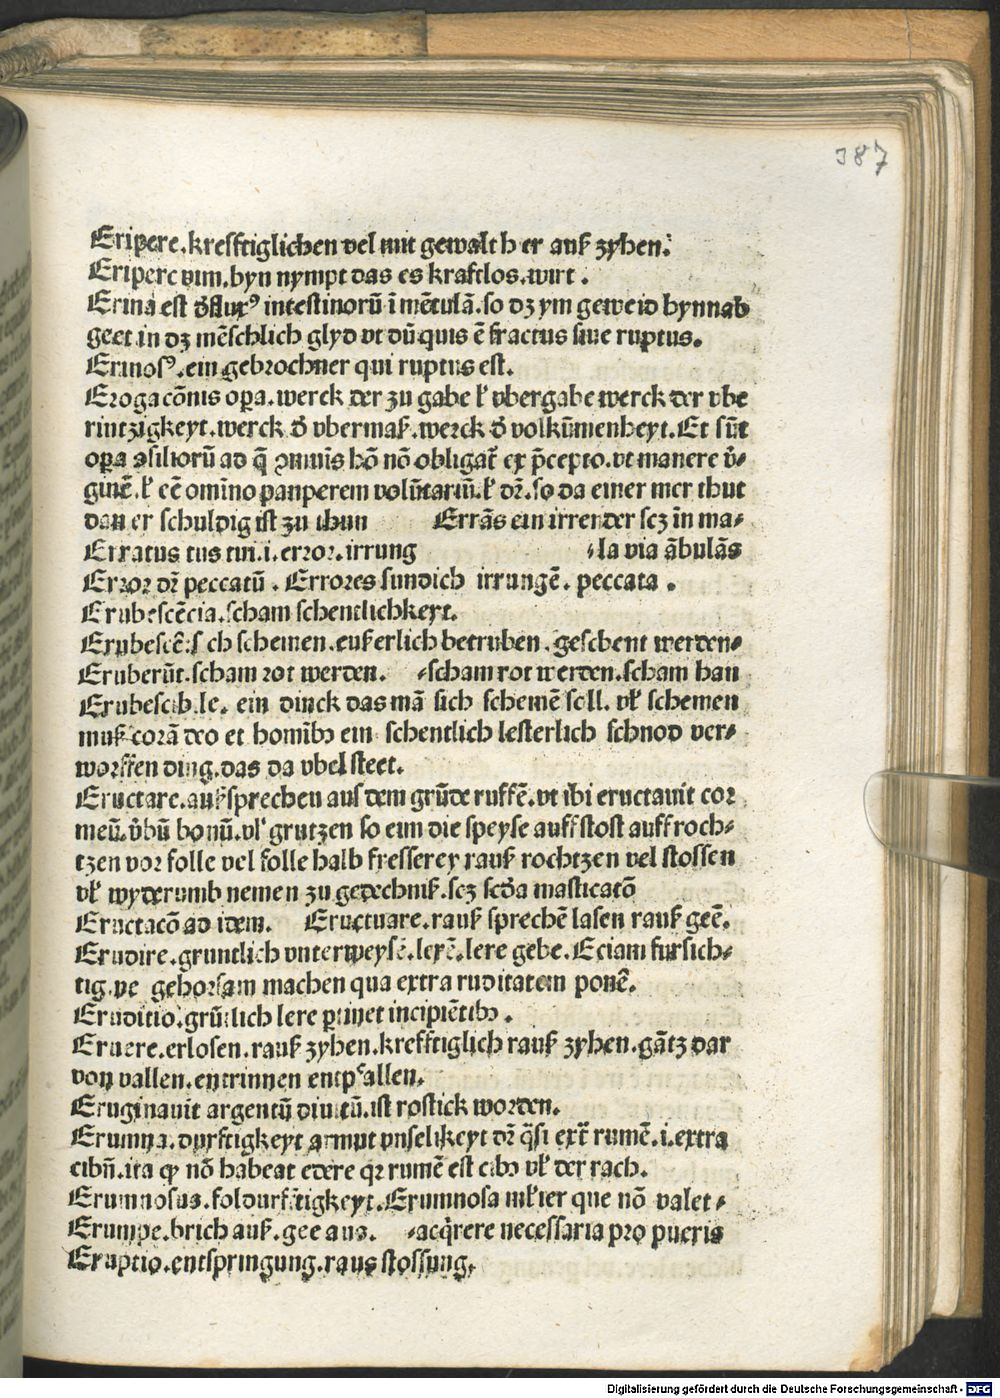 387
Eripere.krefftiglichen vel mit gewalt h er auß zyhen.
Eripere vim.hyn nympt das es kraftlos.wirt.
Erina est intestinorũ ĩ mẽtulã.so dz ym geweid hynnab
geet.in dz mẽschlich glyd vt dũ quis ẽ fractus siue ruptus.
ein gebrochner qui ruptus est.
Erogacõnis opa.werck der zu gabe ł vbergabe werck der vbe
rintzigkeyt.werck đ vbermaß.werck đ volkũmenheyt.Et sũt
opa ꝯsiliorũ ad q̃ hõ nõ obligat̃ ex p̃cepto.vt manere v̉-
ginẽ.ł eẽ omĩno pauperem volũtariũ.ł dr̃.so da einer mer thut
dan er schuldig ist zu thun Errãs ein irrender scz in ma-
Erratus tus tui.i.error.irrung -la via ãbulãs
Error dr̃ peccatũ. Errores sundich irrungẽ. peccata.
Erubescẽcia.scham schentlichkeyt.
Erubescẽ:s ch schemen.eußerlich betruben.geschent werden-
Eruberũt.scham rot werden. -scham rot werden.scham han
Erubescib.le. ein dinck das mã sich schemẽ soll. vł schemen
muß corã deo et homĩbꝫ ein schentlich lesterlich schnod ver-
worffen ding.das da vbel steet.
Eructare.auß sprechen auß dem grũde ruffẽ.vt ibi eructauit cor
meũ.v̉bũ bonũ.vł grutzen so eim die speyse auff stost auff roch-
tzen vor folle vel folle halb fresserey rauß rochtzen vel stossen
vł wyderumb nemen zu gedechniß.scz scđa masticatõ
Eructacõ ad idem. Eructuare.rauß sprechẽ lasen rauß geẽ.
Erudire.gruntlich vnterweysẽ.lerẽ.lere gebe.Eciam fursich-
tig.ve gehorsam machen qua extra ruditatem ponẽ.
Eruditio.grũtlich lere ptinet incipiẽtibꝫ.
Eruere.erlosen.rauß zyhen.krefftiglich rauß zyhen.gãtz dar
von vallen.entrinnen entpfallen.
Eruginauit argentũ diuitũ.ist rostick worden.
Erumna.durftigkeyt armut vnselikeyt dr̃ q̃si ext̃ rumẽ.i.extra
cibũ.ita ꝙ nõ habeat edere qꝛ rumẽ est cibꝫ vł der rach.
Erumnosus.fol durfftigkeyt.Erumnosa młier que nõ valet-
Erumpe.brich auß.gee aus. -acq̃rere necessaria pro pueris
Eruptio.entspringung.raus stossung.
Digitalisierung gefördert durch die Deutsche Forschungsgemeinschaft - DFG